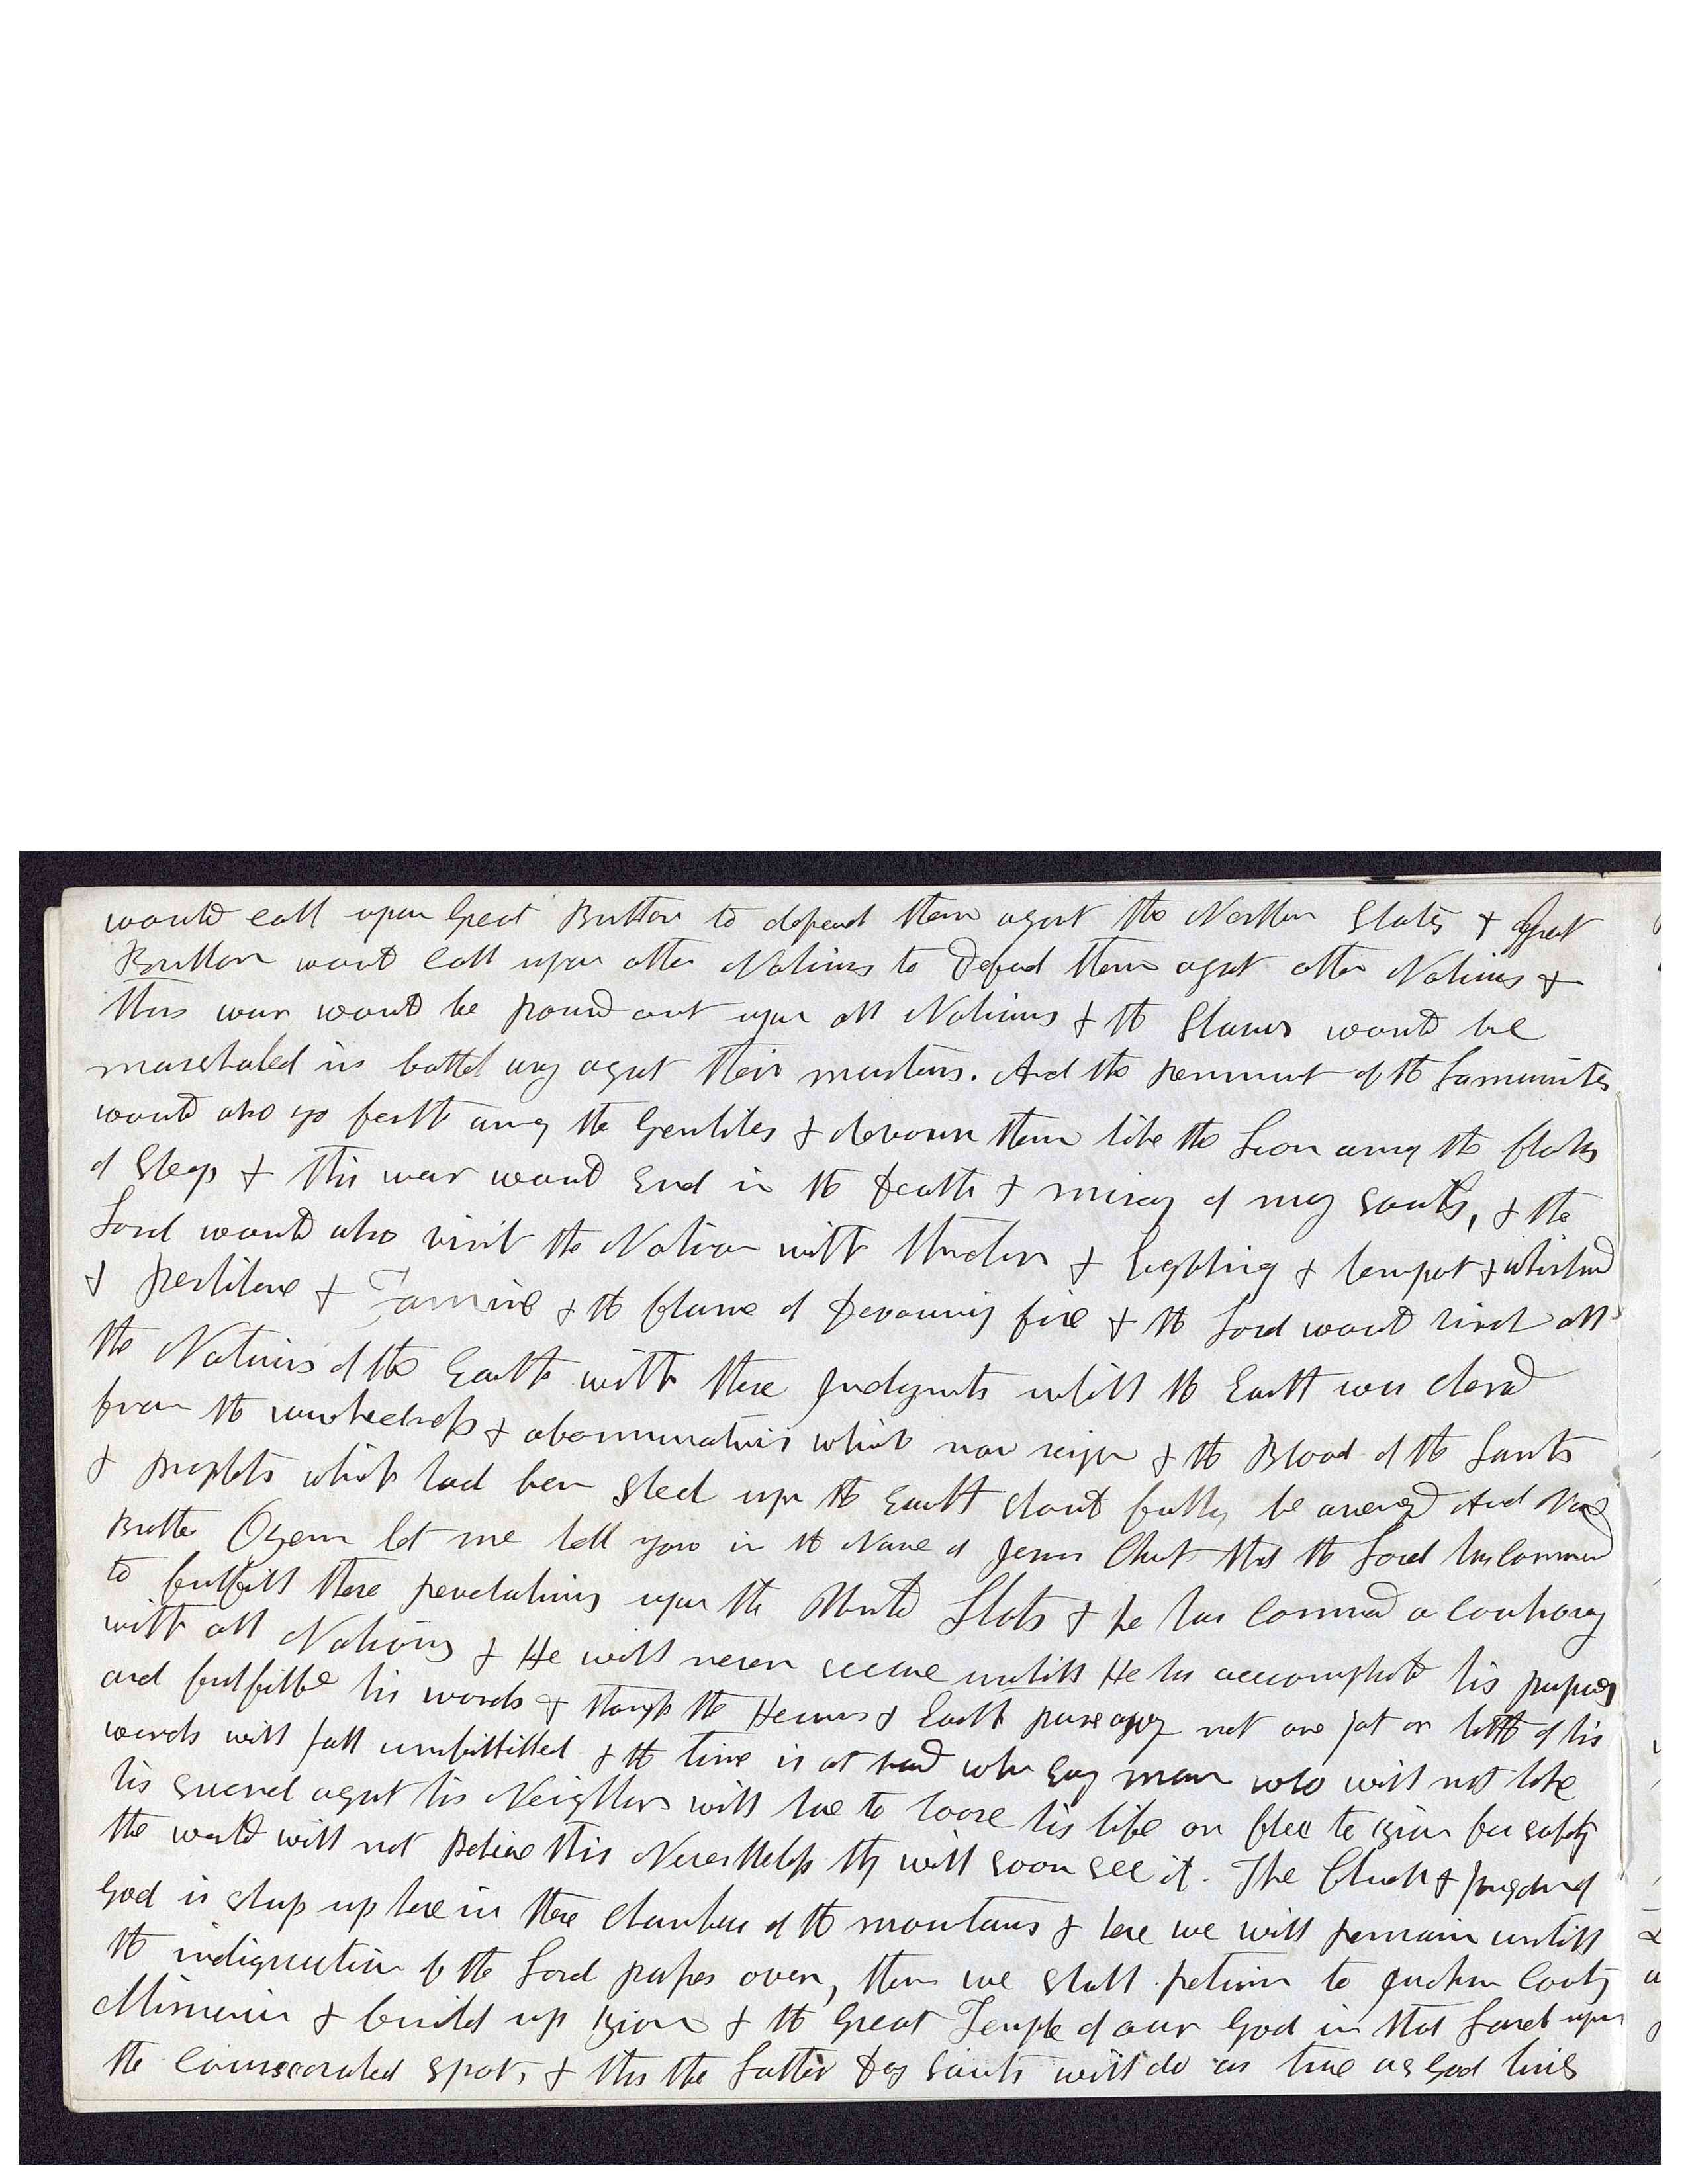 would call upon Great Britton to defend them agast the Northern States & Great
Britton would call upon other Nations to Defend them agast other Nations &
thus war would be poured out upon all Nations & the Slaves would be
marshaled in battel aray agast their masters. And the remnant of the Lamanites
would also go forth among the Gentiles & devour them like the Lion among the flocks
of Sheep & this war would End in the Death & misery of many souls, & the
Lord would also visit the Nation with thunder & lighting & tempest & whirlwind
& pestilence & Famine & the flame of Devouring fire & the Lord would visit all
the Nations of the Earth with these Judgments untill the Earth was clensed
from the wickedness & abomminations which now reign & the Blood of the Saints
& prophets which had been shed upon the Earth should fully be avenged And Now
Brother Ozem let me tell you in the Name of Jesus Christ that the Lord has commenced
to fulfill these revelations upon the United States & he has commenced a controversy
with all Nations & He will never cease untill He has accomplishd his purposes
and fulfilled his words & though the Heavens & Earth pass away not one jot or tittle of his
words will fall unfulfilled & the time is at hand when evry man who will not take
his sword agast his Neighbor will have to loose his life or flee to Zion for safety
the world will not Believe this Nevertheless they will soon see it. The Church & Kingdom of
God is shup up here in these chambers of the mountains & here we will remain untill
the indignation of the Lord passes over, then we shall return to Jackson County
Missouri & build up Zion & the Great Temple of our God in that Land upon
the Consecrated spot, & this the Latter Day Saints will do as true as God lives